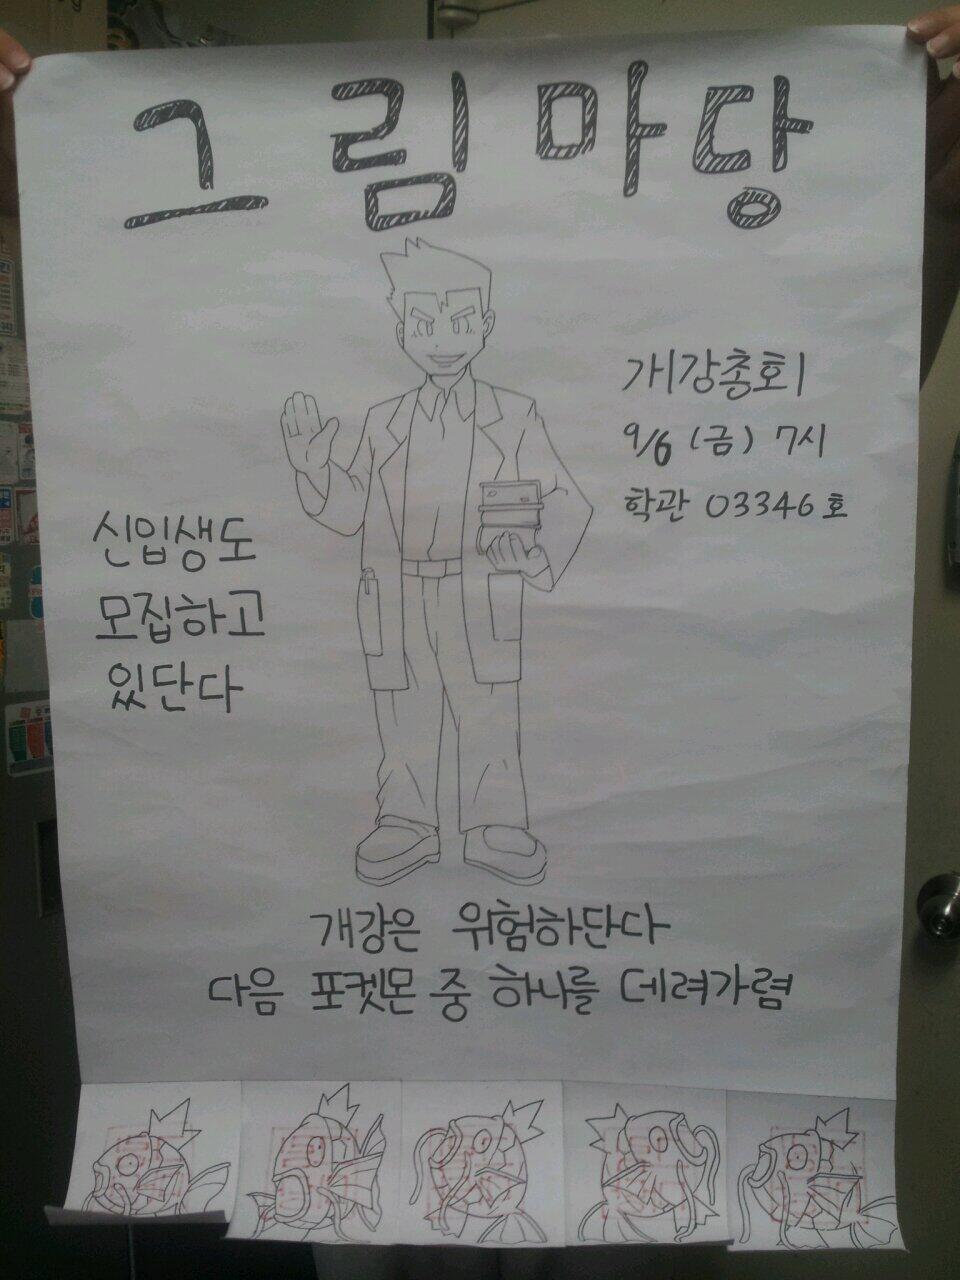 그림마당
개강총회
9/6 (금) 7시
학관 03346호
신입생도
모집하고
있단다
개강은 위험하단다
다음 포켓몬 중 하나를 데려가렴